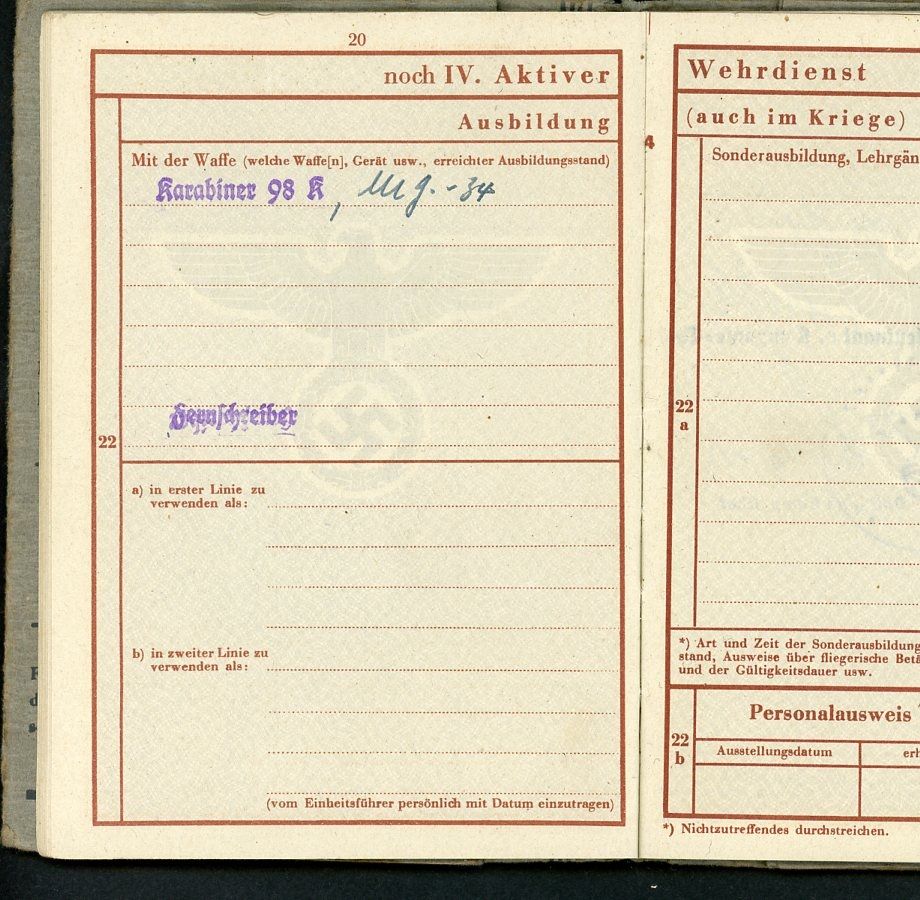 20
noch IV. Aktiver
Ausbildung
Mit der Waffe (welche Waffe[n], Gerät usw., erreichter Ausbildungsstand)
Karabiner 98 K, Mg.-34
Fernschreiber
22
a) in erster Linie zu
verwenden als:
b) in zweiter Linie zu
verwenden als:
(vom Einheitsführer persönlich mit Datum einzutragen)
Wehrdienst
(auch im Kriege)
4
Sonderausbildung, Lehrgän
22
a
*) Art und Zeit der Sonderausbildung
stand, Ausweise über fliegerische Betä
und der Gültigkeitsdauer usw.
Personalausweis
22
b
Ausstellungsdatum
erh
*) Nichtzutreffendes durchstreichen.